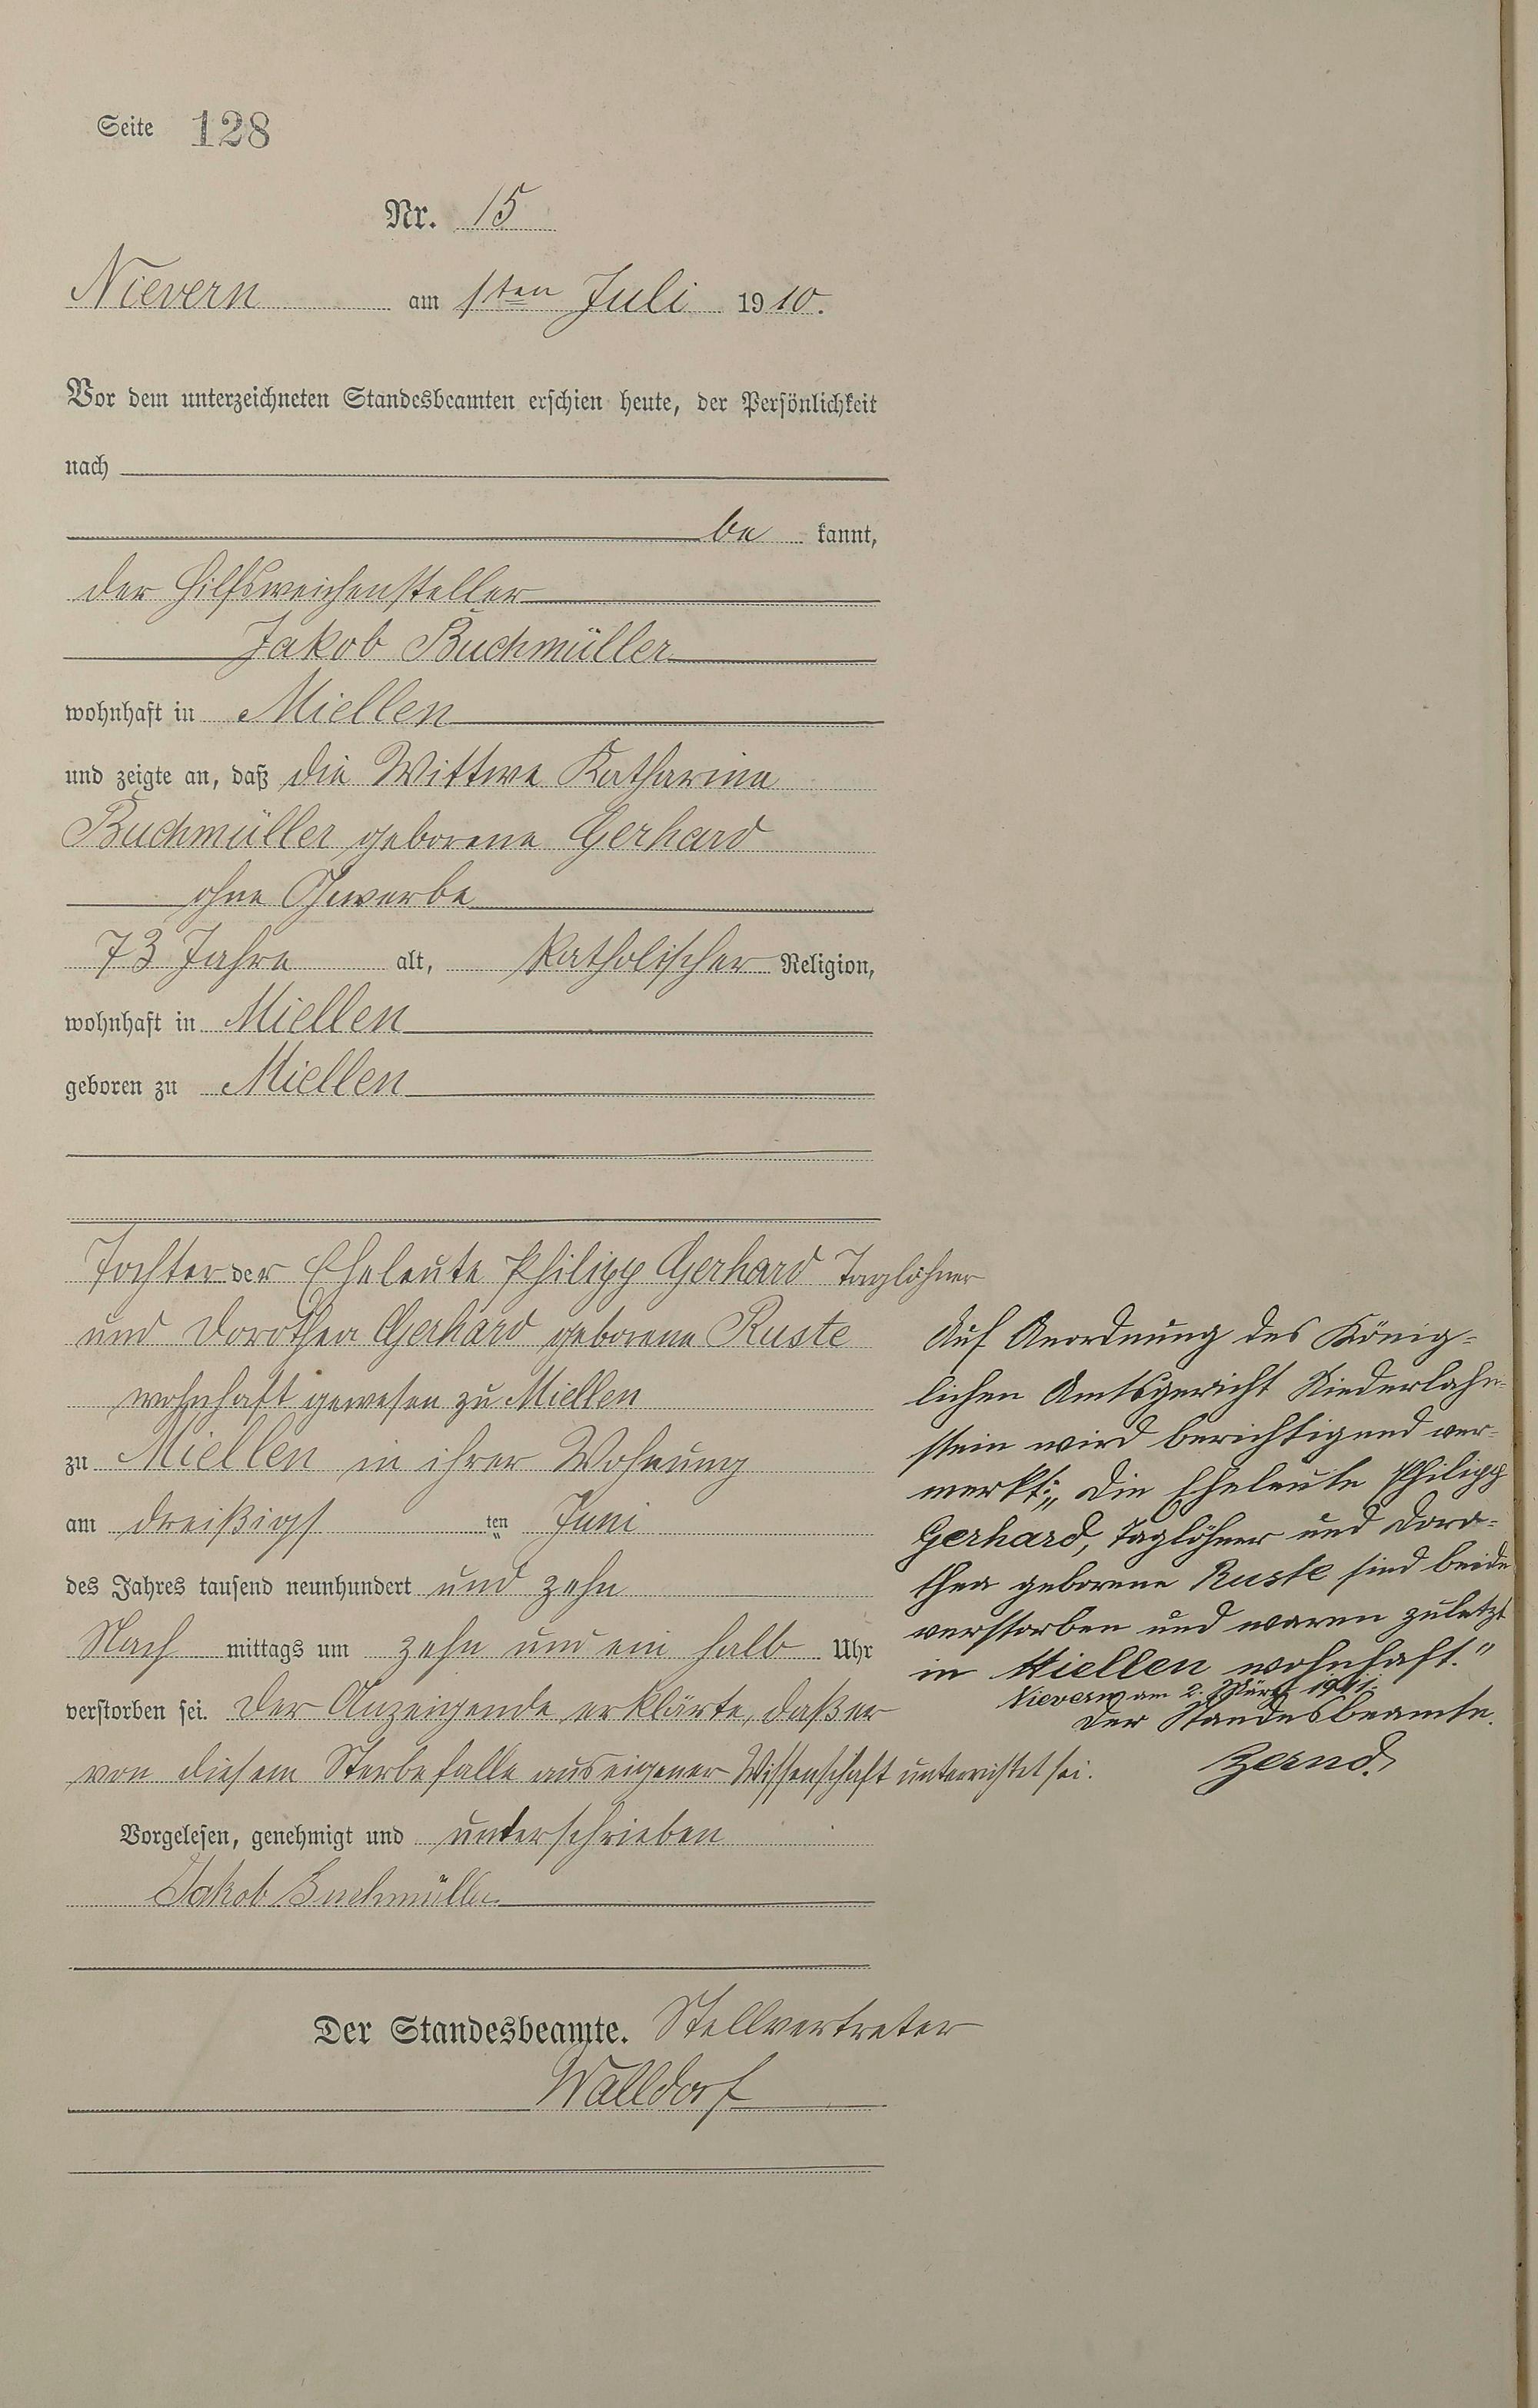 Seite 128
Nr. 15
Nievern am 1ten Juli 1910.
Vor dem unterzeichneten Standesbeamten erschien heute, der Persönlichkeit
nach
be kannt,
der Hilfsweichensteller
Jakob Buchmüller
wohnhaft in Miellen
und zeigte an, daß die Wittwe Katharina
Buchmüller geborene Gerhard
ohne Gewerbe
73 Jahre alt, katholischer Religion,
wohnhaft in Miellen
geboren zu Miellen
Tochter der Eheleute Philipp Gerhard Taglöhner
und Dorothea Gerhard geborene Ruste
wohnhaft gewesen zu Miellen
zu Miellen in ihrer Wohnung
am dreißigs ten Juni
des Jahres tausend neunhundert und zehn
Nach mittags um zehn und ein halb Uhr
verstorben sei. Der Anzeigende erklärte, daß er
von diesem Sterbefalle aus eigener Wissenschaft unterrichtet sei.
Vorgelesen, genehmigt und unterschrieben
Jakob Buchmüller
Der Standesbeamte. Stellvertreter
Walldorf
Auf Anordnung des König-
lichen Amtsgericht Niederlahn-
stein wird berichtigend ver-
merkt: „Die Eheleute Philipp
Gerhard, Taglöhner und Doro-
thea geborene Ruste sind beide
verstorben und waren zuletzt
in Miellen wohnhaft."
Nievern am 2. März 1911.
Der Standesbeamte.
Zernd.